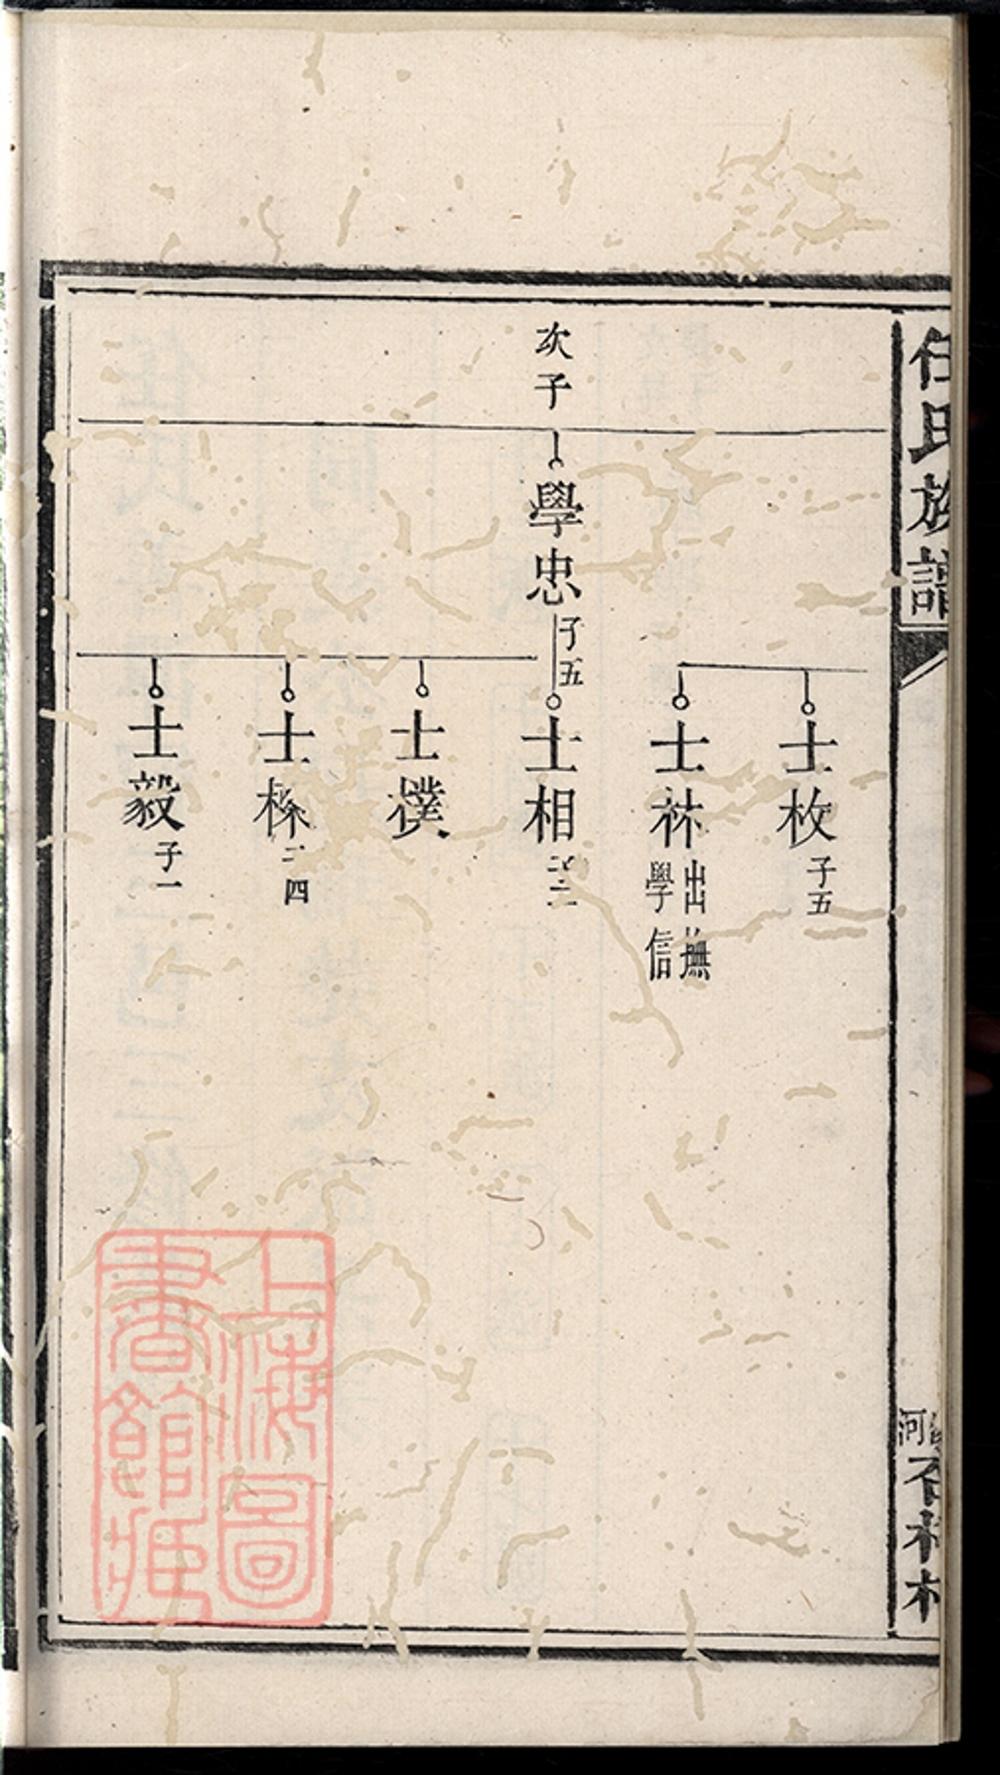 任氏族譜
次子
學忠
子五
士枚
子五
士
出撫
學信
士相
二
士樸
士
四
士毅
子一
河
村
上海圖
書館藏